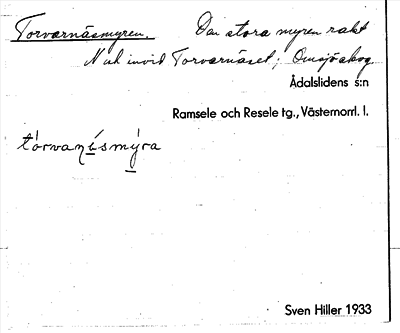 Torvarnäsmyren. Den stora myren rakt
N ut invid Torvarnäset; Omsjö skog
Ådalslidens s:n
Ramsele och Resele tg., Västernorrl. l.
tórvanísmýra
Sven Hiller 1933